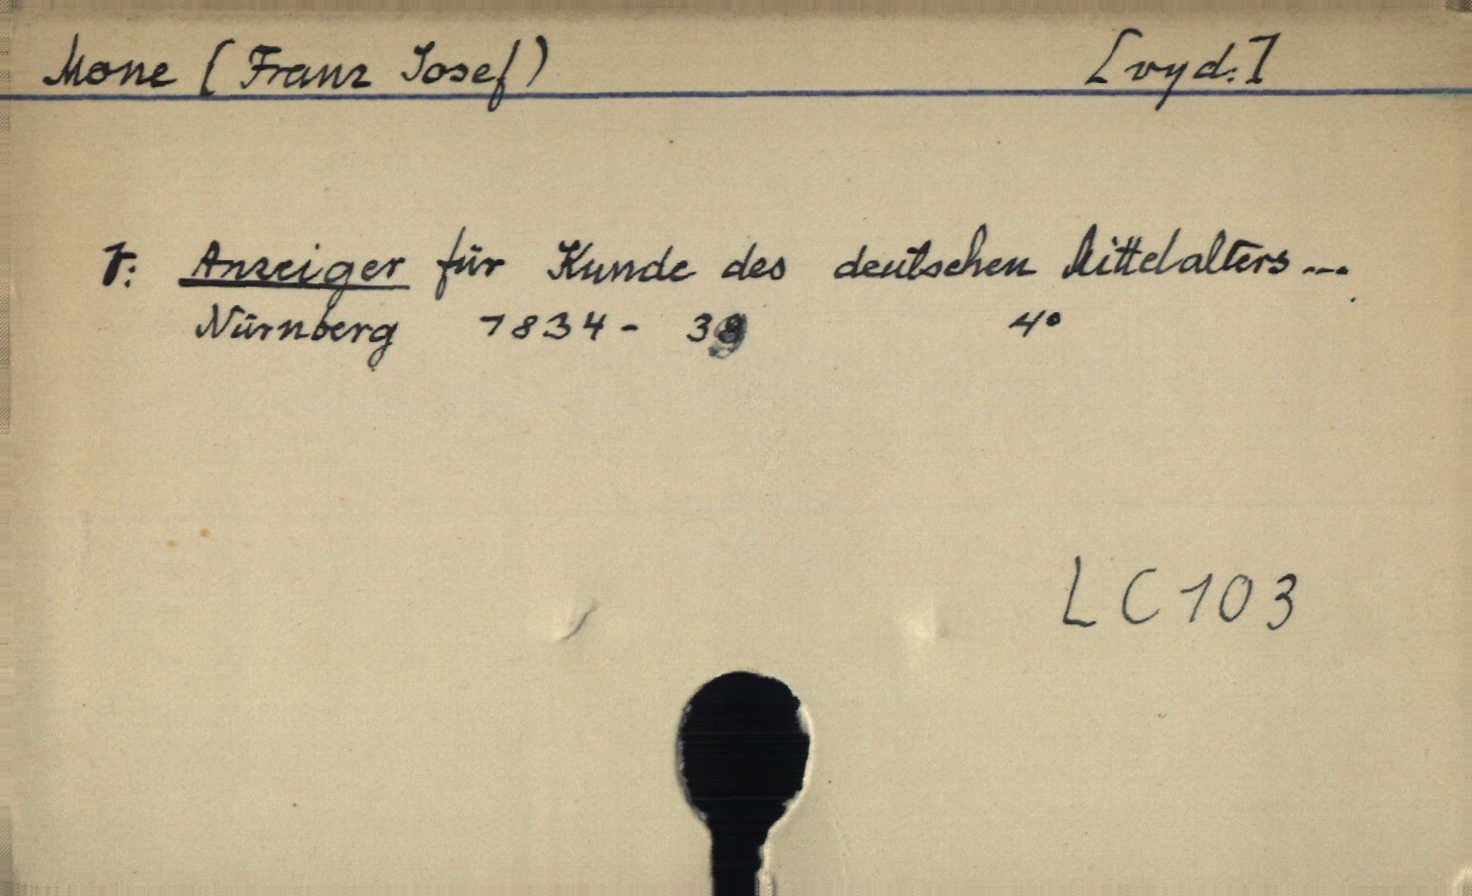 Mone (Franz Josef) [vyd.]
v: Anzeiger für Kunde des deutschen Mittelalters...
Nürnberg 1834- 39 4°
LC103